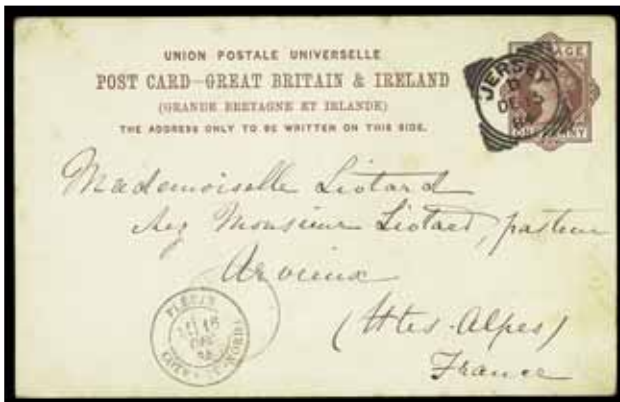 UNION POSTALE UNIVERSELLE
POST CARD—GREAT BRITAIN & IRELAND
(GRANDE BRETAGNE ET IRLANDE)
THE ADDRESS ONLY TO BE WRITTEN ON THIS SIDE.
JERSEY
D
DE 15
Mademoiselle Liotard
chez Monsieur Liotard, pasteur
Arvieux
(Htes-Alpes)
France
16
DEC